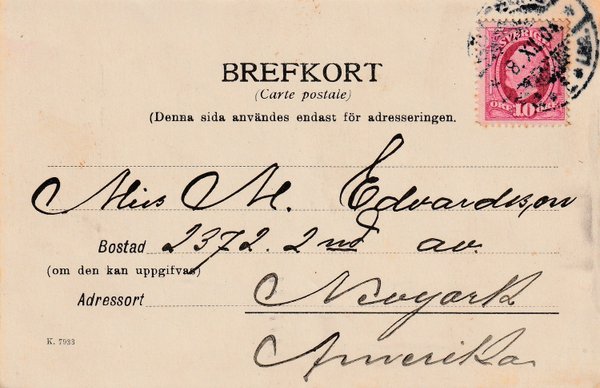 SVERIGE
8.XI.04
ÖRE 10 ÖRE
BREFKORT
(Carte postale)
(Denna sida användes endast för adresseringen.
Miss M. Edvardsson
Bostad 2372. 2nd av.
(om den kan uppgifvas)
Adressort Newyork
K. 7933
Amerika